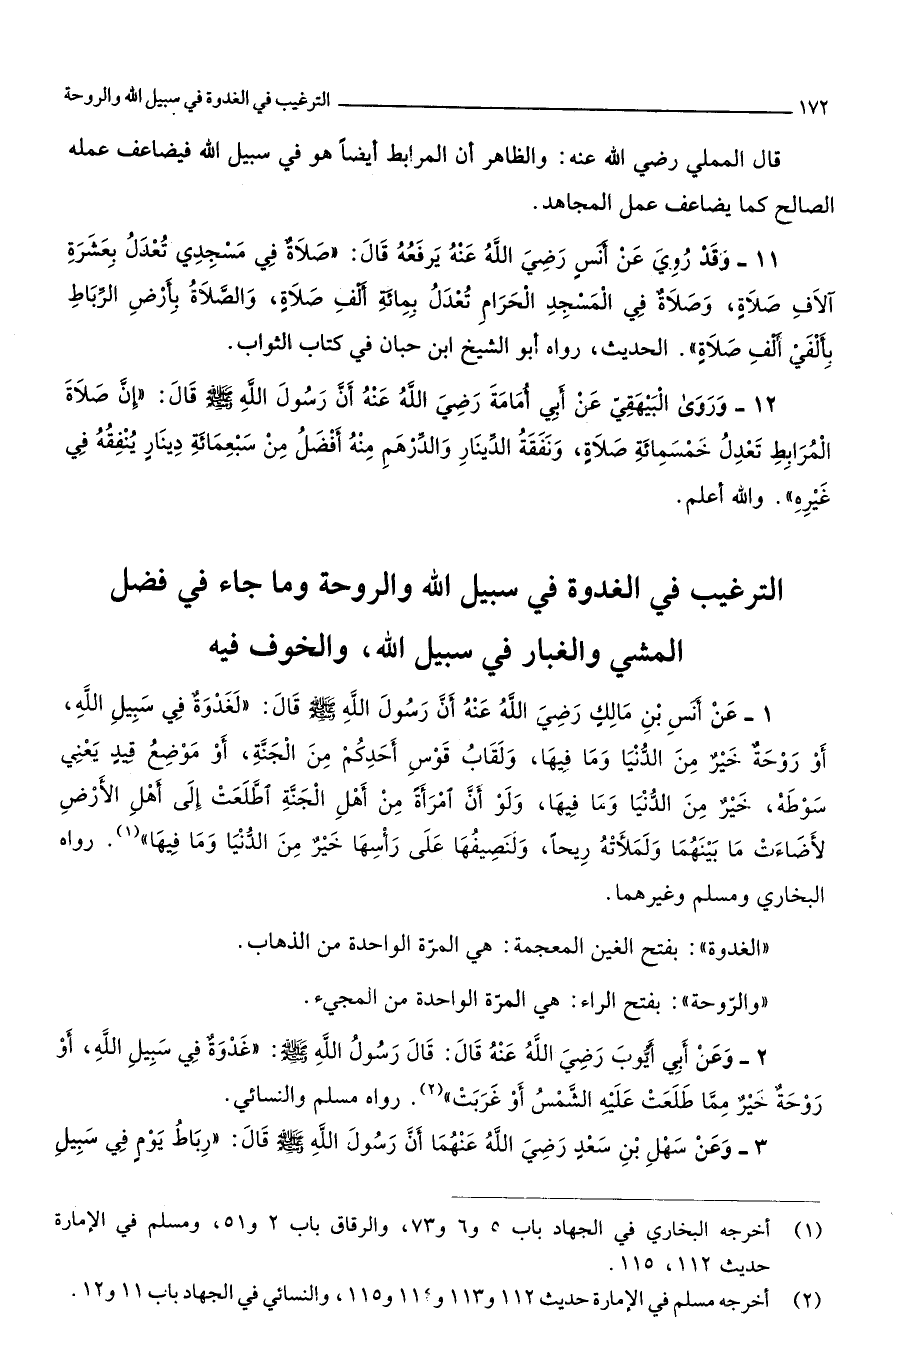 ١٧٢ ــــــــــــــــــــــــــــــــ الترغيب في الغدوة في سبيل الله والروحة
قال المملي رضي الله عنه: والظاهر أن المرابط أيضاً هو في سبيل الله فيضاعف عمله
الصالح كما يضاعف عمل المجاهد.
١١ ـ وَقَدْ رُوِيَ عَنْ أَنَسٍ رَضِيَ اللَّهُ عَنْهُ يَرفَعُهُ قَالَ: «صَلَاةٌ فِي مَسْجِدِي تُعْدَلُ بِعَشَرَةِ
آلاَفِ صَلَاةٍ، وَصَلَاةٌ فِي الْمَسْجِدِ الْحَرَامِ تُعْدَلُ بِمِائَةِ أَلْفِ صَلَاةٍ، وَالصَّلَاةُ بِأَرْضِ الرِّبَاطِ
بِأَلْفَيْ أَلْفِ صَلَاةٍ». الحديث، رواه أبو الشيخ ابن حبان في كتاب الثواب.
١٢ ـ وَرَوَىٰ الْبَيْهَقِيّ عَنْ أَبِي أُمَامَةَ رَضِيَ اللَّهُ عَنْهُ أَنَّ رَسُولَ اللَّهِ ﷺ قَالَ: «إِنَّ صَلَاةَ
الْمُرَابِطِ تَعْدِلُ خَمْسَمِائَةِ صَلَاةٍ، وَنَفَقَةُ الدِّينَارِ وَالدِّرْهَمِ مِنْهُ أَفْضَلُ مِنْ سَبْعِمَائَةِ دِينَارٍ يُنْفِقُهُ فِي
غَيْرِهِ». والله أعلم.
الترغيب في الغدوة في سبيل الله والروحة وما جاء في فضل
المشي والغبار في سبيل الله، والخوف فيه
١ ـ عَنْ أَنَسِ بْنِ مَالِكٍ رَضِيَ اللَّهُ عَنْهُ أَنَّ رَسُولَ اللَّهِ ﷺ قَالَ: «لَغَدْوَةٌ فِي سَبِيلِ اللَّهِ،
أَوْ رَوْحَةٌ خَيْرٌ مِنَ الدُّنْيَا وَمَا فِيهَا، وَلَقَابُ قَوْسِ أَحَدِكُمْ مِنَ الْجَنَّةِ، أَوْ مَوْضِعُ قِيدٍ يَعْنِي
سَوْطَهُ، خَيْرٌ مِنَ الدُّنْيَا وَمَا فِيهَا، وَلَوْ أَنَّ ٱمْرَأَةً مِنْ أَهْلِ الْجَنَّةِ ٱطَّلَعَتْ إِلَى أَهْلِ الأَرْضِ
لأَضَاءَتْ مَا بَيْنَهُمَا وَلَمَلأَتْهُ رِيحاً، وَلَنَصِيفُهَا عَلَى رَأْسِهَا خَيْرٌ مِنَ الدُّنْيَا وَمَا فِيهَا»(١). رواه
البخاري ومسلم وغيرهما.
«الغدوة»: بفتح الغين المعجمة: هي المرّة الواحدة من الذهاب.
«والرّوحة»: بفتح الراء: هي المرّة الواحدة من المجيء.
٢ ـ وَعَنْ أَبِي أَيُّوبَ رَضِيَ اللَّهُ عَنْهُ قَالَ: قَالَ رَسُولُ اللَّهِ ﷺ: «غَدْوَةٌ فِي سَبِيلِ اللَّهِ، أَوْ
رَوْحَةٌ خَيْرٌ مِمَّا طَلَعَتْ عَلَيْهِ الشَّمْسُ أَوْ غَرَبَتْ»(٢). رواه مسلم والنسائي.
٣ ـ وَعَنْ سَهْلِ بْنِ سَعْدٍ رَضِيَ اللَّهُ عَنْهُمَا أَنَّ رَسُولَ اللَّهِ ﷺ قَالَ: «رِبَاطُ يَوْمٍ فِي سَبِيلِ
(١) أخرجه البخاري في الجهاد باب ٥ و٦ و٧٣، والرقاق باب ٢ و٥١، ومسلم في الإمارة
حديث ١١٢، ١١٥.
(٢) أخرجه مسلم في الإمارة حديث ١١٢ و١١٣ و١١٤ و١١٥، والنسائي في الجهاد باب ١١ و١٢.